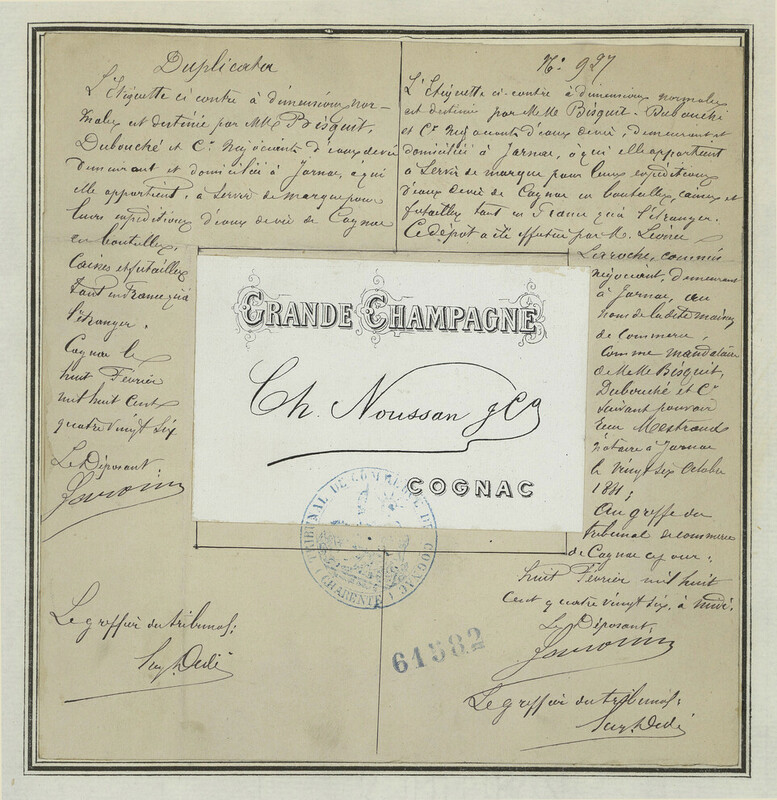 Duplicata
L'Etiquette ci contre à dimensions nor-
males est destinée par MM Bisquit,
Dubouché et Cie Négociants d'eaux de vie
demeurant et domiciliés à Jarnac, à qui
elle appartient, à servir de marque pour
leurs expéditions d'eaux de vie de Cognac
en bouteilles,
Caisses et futailles
tant en France qu'à
l'étranger.
Cognac le
huit Février
mil huit Cent
quatre vingt six
Le Déposant
Le greffier du tribunal;
No 927
L'Etiquette ci-contre à dimensions normales
est destinée par MM Bisquit Dubouché
et Cie Négociants d'eaux de vie, demeurant et
domiciliés à Jarnac, à qui elle appartient
à servir de marque pour leurs expéditions
d'eaux de vie de Cognac en bouteilles, caisses et
futailles tant en France qu'à l'étranger.
Ce dépôt a été effectué par M.
Laroche, commis
négociant, demeurant
à Jarnac, au
nom de la dite maison
de Commerce,
comme mandataire
de MM Bisquit,
Dubouché et Cie
suivant pouvoir
reçu Mestreau
notaire à Jarnac
le vingt six octobre
1881;
Au greffe du
tribunal de commerce
de Cognac ce jour;
huit Février mil huit
Cent quatre vingt six, à midi.
Le Déposant
Le greffier du tribunal;
GRANDE CHAMPAGNE
Ch. Noussan & Co
COGNAC
TRIBUNAL DE COMMERCE DE COGNAC
(CHARENTE)
61582